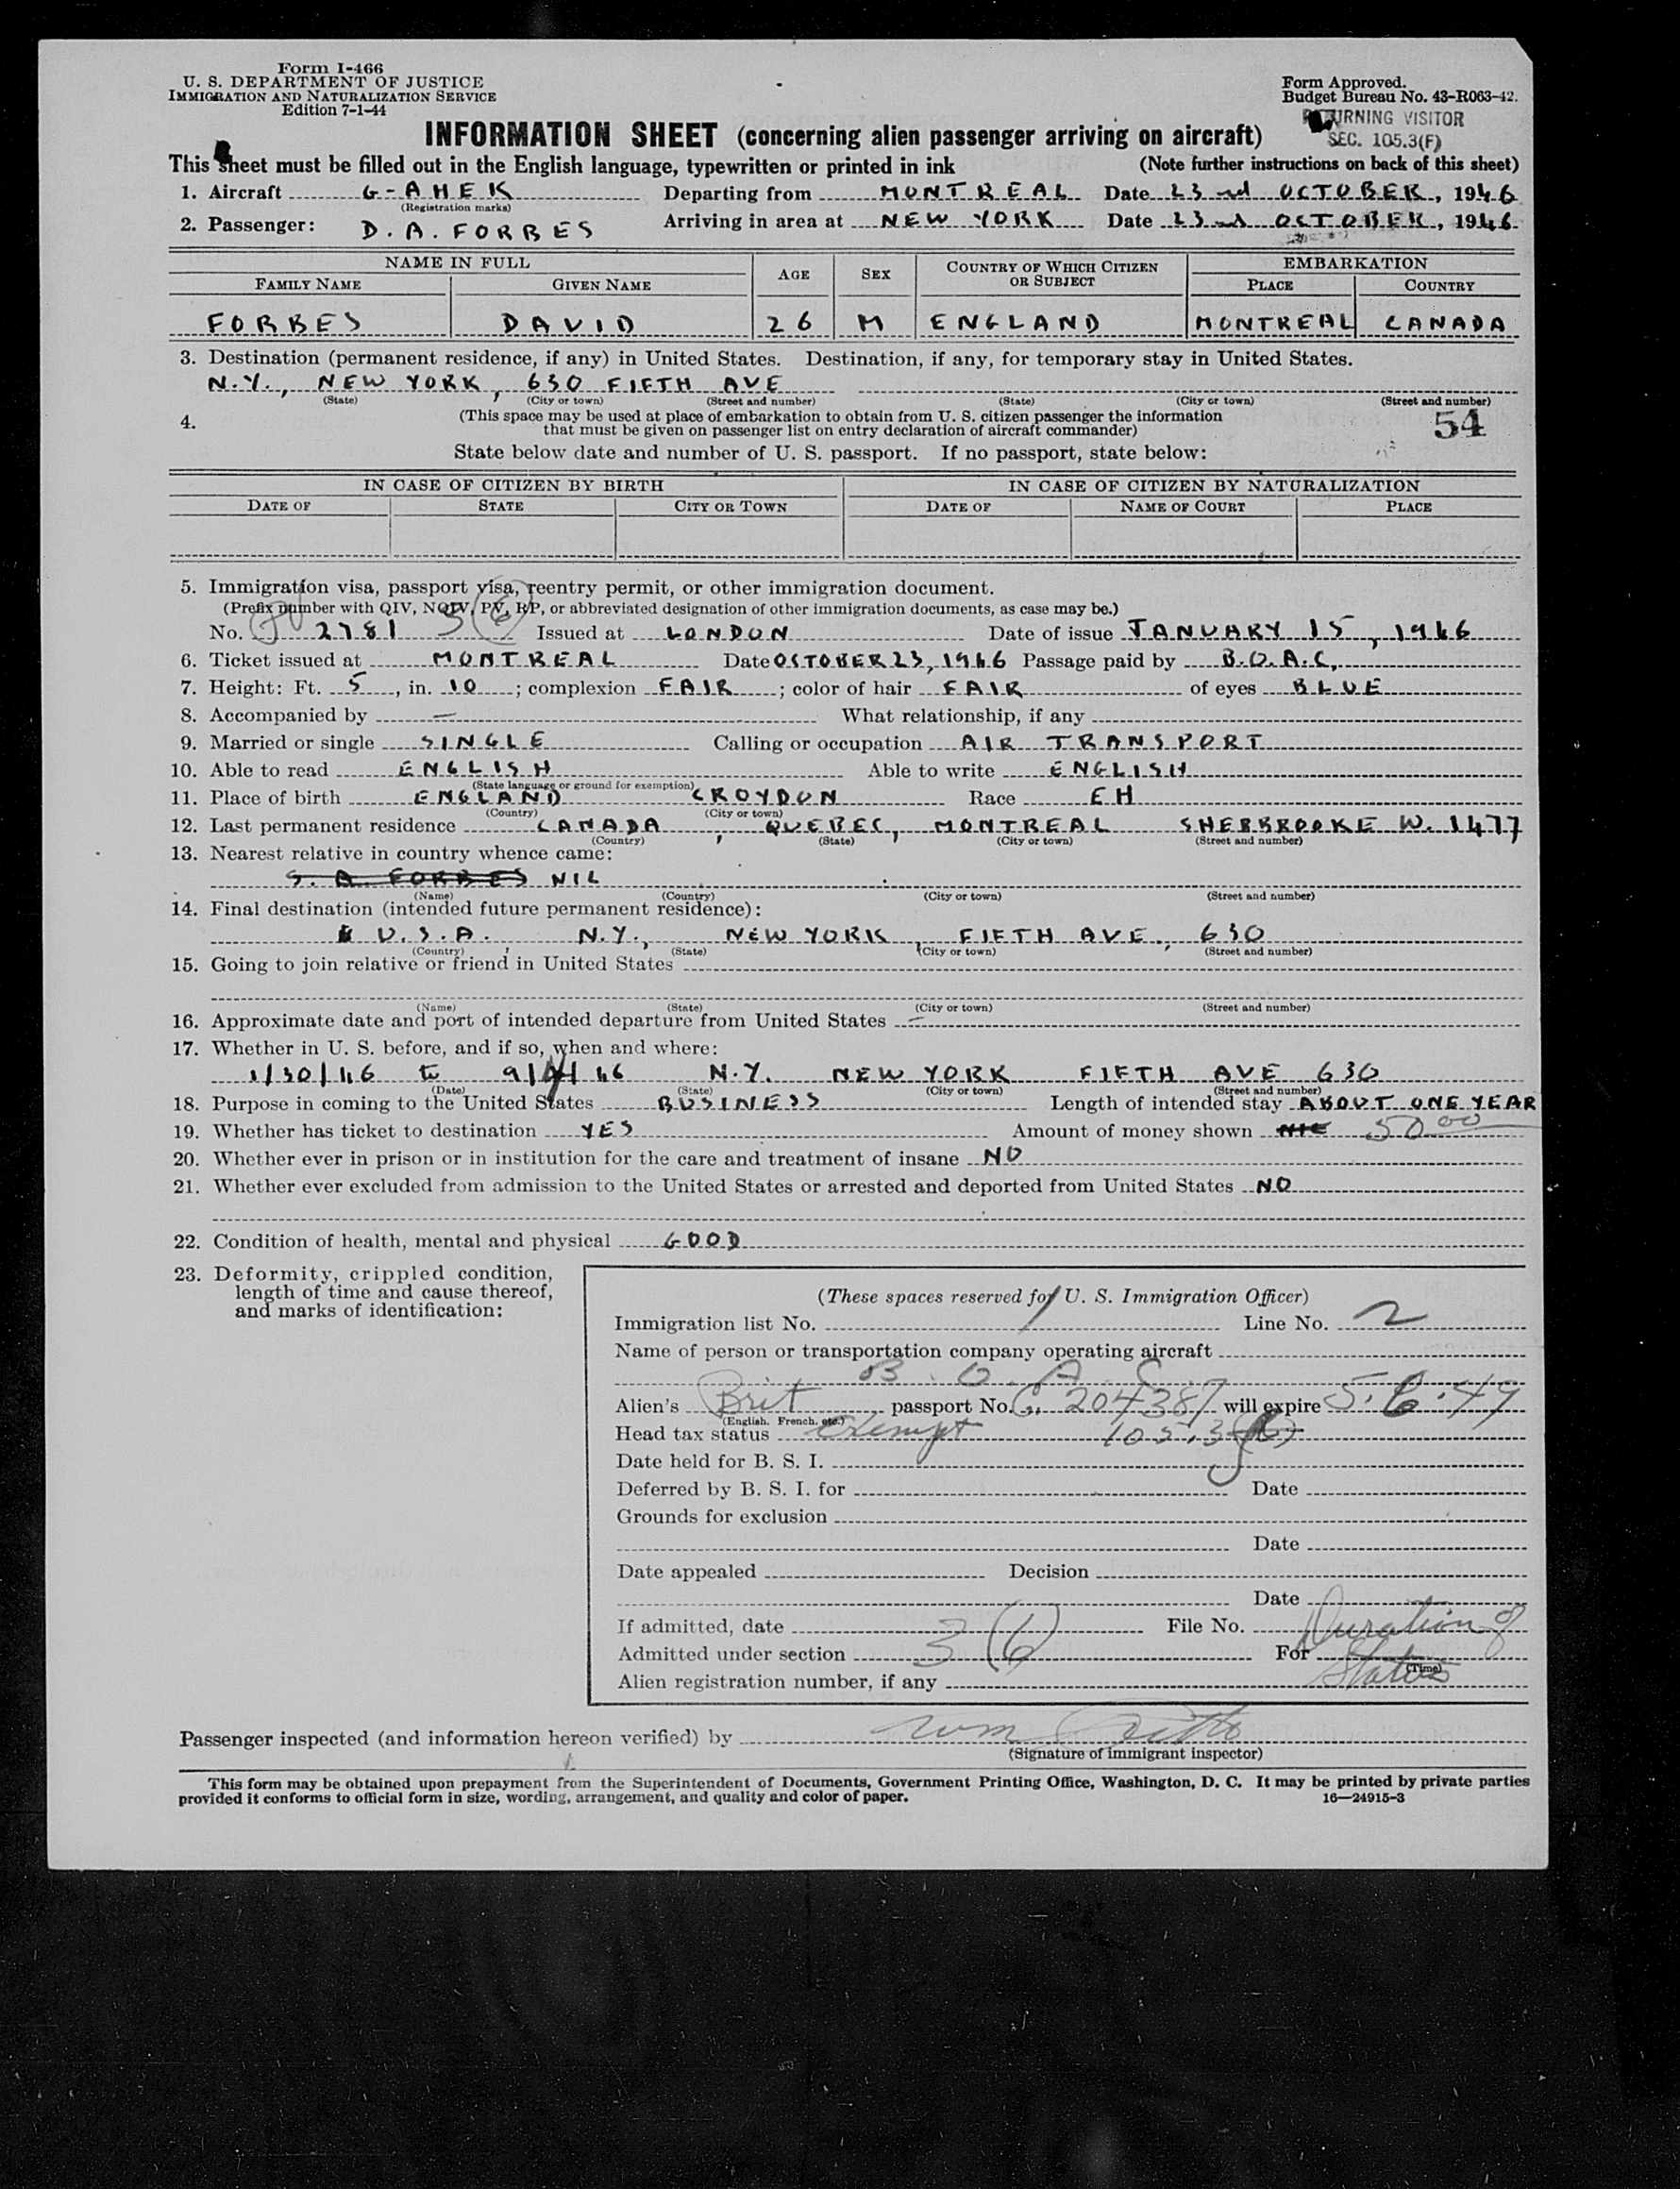 Form I-466
U. S. DEPARTMENT OF JUSTICE
IMMIGRATION AND NATURALIZATION SERVICE
Edition 7-1-44
Form Approved.
Budget Bureau No. 43-R063-42.
RETURNING VISITOR
SEC. 105.3(F)
INFORMATION SHEET (concerning alien passenger arriving on aircraft)
This sheet must be filled out in the English language, typewritten or printed in ink (Note further instructions on back of this sheet)
1. Aircraft G-AHEK Departing from MONTREAL Date 23rd OCTOBER, 1946
(Registration marks)
2. Passenger: D. A. FORBES Arriving in area at NEW YORK Date 23rd OCTOBER, 1946
NAME IN FULL AGE SEX COUNTRY OF WHICH CITIZEN OR SUBJECT EMBARKATION
FAMILY NAME GIVEN NAME PLACE COUNTRY
FORBES DAVID 26 M ENGLAND MONTREAL CANADA
3. Destination (permanent residence, if any) in United States. Destination, if any, for temporary stay in United States.
N.Y., NEW YORK, 630 FIFTH AVE
(State) (City or town) (Street and number) (State) (City or town) (Street and number)
4. (This space may be used at place of embarkation to obtain from U. S. citizen passenger the information
that must be given on passenger list on entry declaration of aircraft commander)
54
State below date and number of U. S. passport. If no passport, state below:
IN CASE OF CITIZEN BY BIRTH IN CASE OF CITIZEN BY NATURALIZATION
DATE OF STATE CITY OR TOWN DATE OF NAME OF COURT PLACE
5. Immigration visa, passport visa, reentry permit, or other immigration document.
(Prefix number with QIV, NQIV, PV, RP, or abbreviated designation of other immigration documents, as case may be.)
No. PV 2781 3(6) Issued at LONDON Date of issue JANUARY 15, 1946
6. Ticket issued at MONTREAL Date OCTOBER 23, 1946 Passage paid by B.O.A.C.
7. Height: Ft. 5, in. 10; complexion FAIR; color of hair FAIR of eyes BLUE
8. Accompanied by — What relationship, if any
9. Married or single SINGLE Calling or occupation AIR TRANSPORT
10. Able to read ENGLISH Able to write ENGLISH
(State language or ground for exemption)
11. Place of birth ENGLAND CROYDON Race EH
(Country) (City or town)
12. Last permanent residence CANADA, QUEBEC, MONTREAL SHERBROOKE W. 1477
(Country) (State) (City or town) (Street and number)
13. Nearest relative in country whence came:
S. A. FORBES NIL
(Name) (Country) (City or town) (Street and number)
14. Final destination (intended future permanent residence):
U.S.A. N.Y., NEW YORK, FIFTH AVE, 630
(Country) (State) (City or town) (Street and number)
15. Going to join relative or friend in United States
(Name) (State) (City or town) (Street and number)
16. Approximate date and port of intended departure from United States —
17. Whether in U. S. before, and if so, when and where:
1/30/46 to 9/ /46 N.Y. NEW YORK FIFTH AVE 630
(Date) (State) (City or town) (Street and number)
18. Purpose in coming to the United States BUSINESS Length of intended stay ABOUT ONE YEAR
19. Whether has ticket to destination YES Amount of money shown NIL 50 00
20. Whether ever in prison or in institution for the care and treatment of insane NO
21. Whether ever excluded from admission to the United States or arrested and deported from United States NO
22. Condition of health, mental and physical GOOD
23. Deformity, crippled condition,
length of time and cause thereof,
and marks of identification:
(These spaces reserved for U. S. Immigration Officer)
Immigration list No. 1 Line No. 2
Name of person or transportation company operating aircraft
B. O. A. C
Alien's Brit passport No. C. 204387 will expire 5.6.49
(English, French, etc.)
Head tax status Exempt 105.3(f)
Date held for B. S. I.
Deferred by B. S. I. for Date
Grounds for exclusion
Date
Date appealed Decision
Date
If admitted, date File No.
Admitted under section 3(6) For Duration of Status
(Time)
Alien registration number, if any
Passenger inspected (and information hereon verified) by Wm
(Signature of immigrant inspector)
This form may be obtained upon prepayment from the Superintendent of Documents, Government Printing Office, Washington, D. C. It may be printed by private parties
provided it conforms to official form in size, wording, arrangement, and quality and color of paper. 16—24915-3